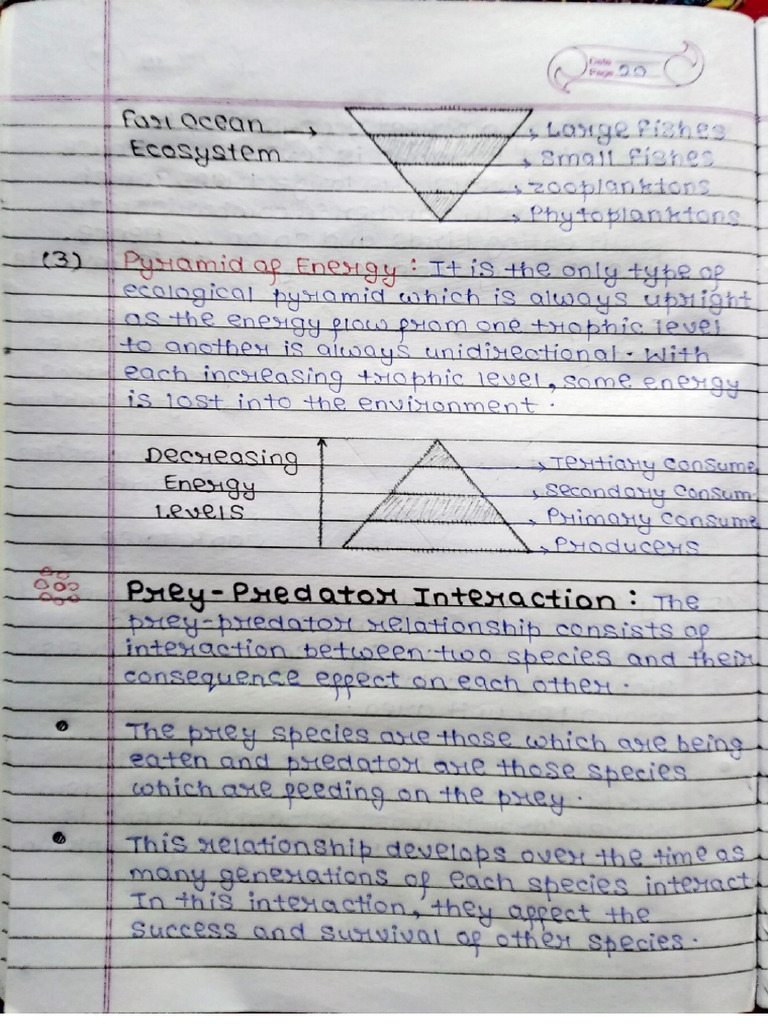 Date
Page 20
For Ocean
Ecosystem
Large fishes
Small fishes
Zooplanktons
Phytoplanktons
(3) Pyramid of Energy : It is the only type of
ecological pyramid which is always upright
as the energy flow from one trophic level
to another is always unidirectional. With
each increasing trophic level, some energy
is lost into the environment.
Decreasing
Energy
Levels
Tertiary Consume
Secondary Consum
Primary Consume
Producers
Prey-Predator Interaction : The
prey-predator relationship consists of
interaction between two species and their
consequence effect on each other.
• The prey species are those which are being
eaten and predator are those species
which are feeding on the prey.
• This relationship develops over the time as
many generations of each species interact.
In this interaction, they affect the
success and survival of other species.